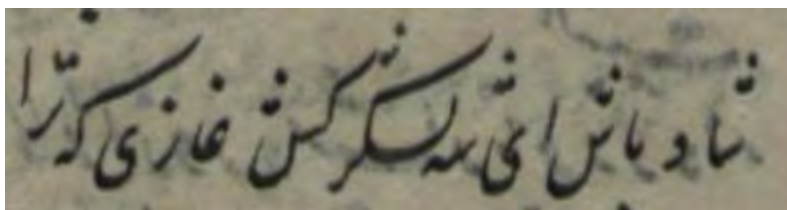 شاد باش ای شه لشکر کش غازی که ترا